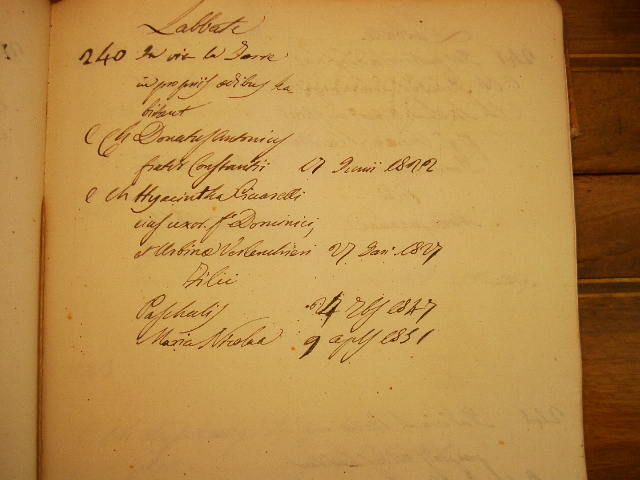 Labbate
240 In via la Torre
in proprijs ædibus ha
bitant
C Ch Donatus Antonius
frater Constantii 17 Junii 1822
C Ch Hyacintha Ciccarelli
ejus uxor. f.ª Dominici,
et Urbinæ 27 Jan. 1827
Filii
Paschalis 24 7bs 1847
Maria Nicolaa 9 aplis 1851